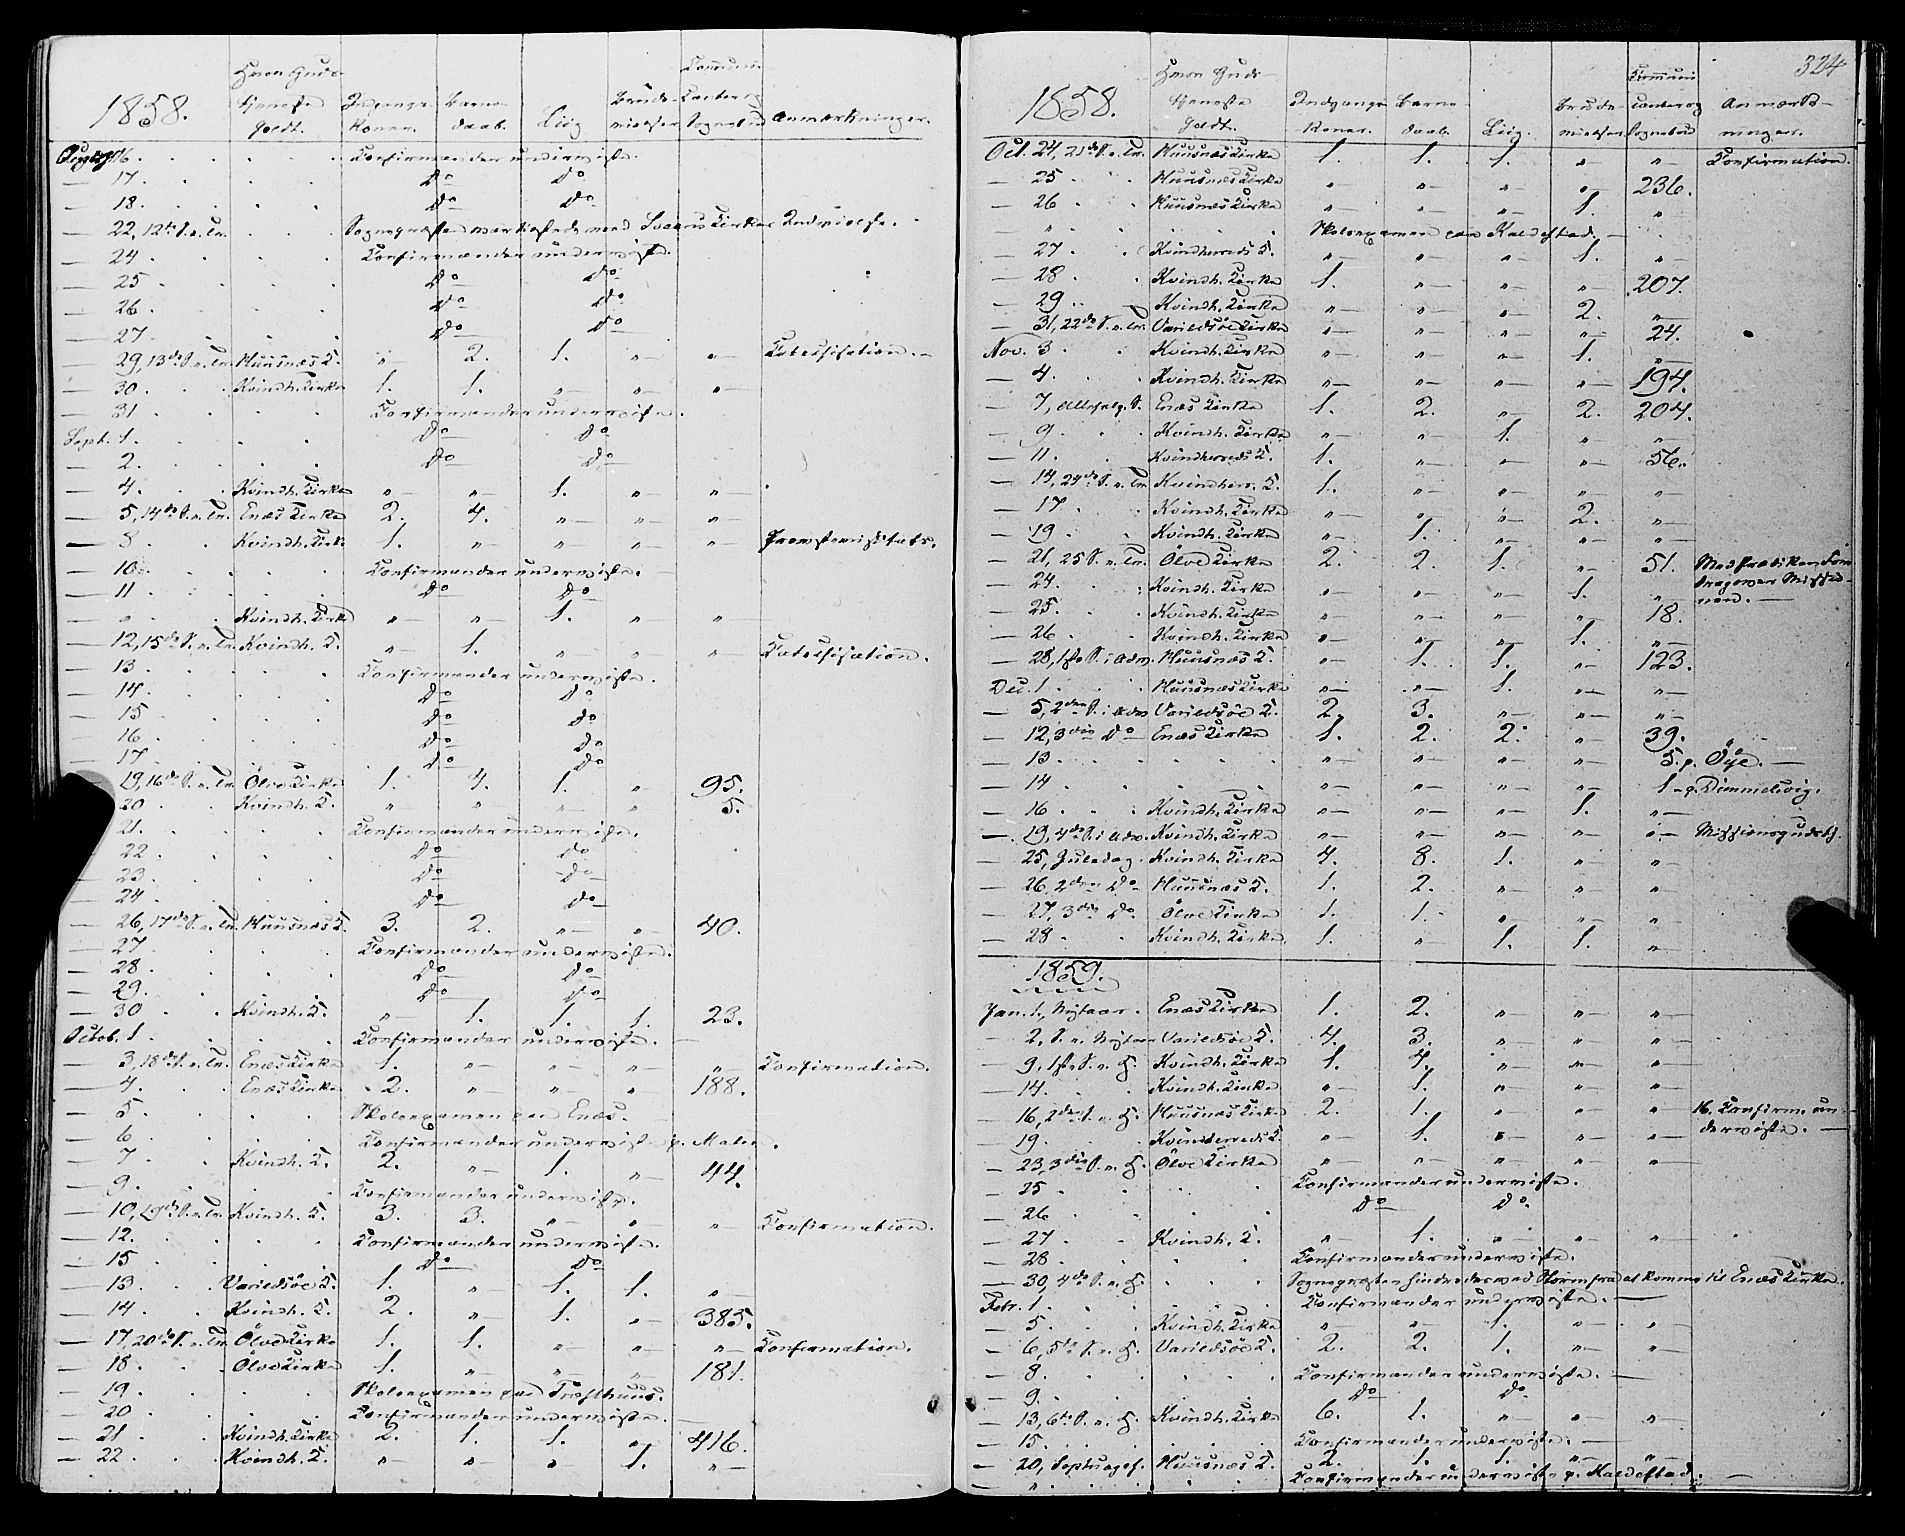 1858.
Hvor Guds-
tjeneste
holdt.
Indgangs-
Koner.
Barne-
daab.
Liig
Brude-
vielser
Communi-
canter og
Sognebud
Anmærkninger.
August 16. Confirmander underviste.
— 17. Do Do
— 18. Do Do
— 22, 12te S. e. Tr. Sognepræsten Kirkes Indvielse.
— 24. Confirmander underviste.
— 25 Do Do
— 26. Do Do
— 27. Do Do
— 29, 13de S. e. Tr. Huusnæs K. " 2. 1. " " Catechisation.
— 30. Kvindh. Kirke 1. 1. " " "
— 31 Confirmander underviste.
Sept. 1. Do Do
— 2. Do Do
— 4. Kvindh. Kirke " " 1. " "
— 5, 14de S. e. Tr. Enæs Kirke 2. 4. " " "
— 8. Kvindh. Kirke 1. " " " "
— 10. Confirmander underviste.
— 11 Do Do
— " Kvindh. Kirke " " 1. " "
— 12, 15de S. e. Tr. Kvindh. K. " 1. " " " Catechisation.
— 13 Confirmander underviste.
— 14. Do Do
— 15 Do Do
— 16. Do Do
— 17. Do Do
— 19, 16de S. e. Tr. Ölve Kirke 1. 4. 1. " 95.
— 20 Kvindh. K. " " " " 5.
— 21. Confirmander underviste.
— 22 Do Do
— 23 Do Do
— 24 Do Do
— 26, 17de S. e. Tr. Huusnæs K. 3. 2. " " 40.
— 27 Confirmander underviste.
— 28 Do Do
— 29. Do Do
— 30 Kvindh. K. " 1. 1. 1. 23.
Octob. 1 Confirmander underviste.
— 3, 18de S. e. Tr. Enæs Kirke 1. " " " " Confirmation.
— 4. Enæs Kirke 2. " " " 188.
— 5 Skoleexamen paa Enæs.
— 6 Confirmander underviste p. Malm.
— 7 Kvindh. K. 2. " 1. " 44.
— 9. Confirmander underviste.
— 10, 19de S. e. Tr. Kvindh. K. 3. 3. " " " Confirmation.
— 12. Confirmander underviste.
— 15 Do Do
— 13 Varildsöe K. 1. " 1. 1. "
— 14. Kvindh. K. 2. " 1. " 385.
— 17, 20de S. e. Tr. Ölve Kirke 1. 1. " " " Confirmation.
— 18 Ölve Kirke 1. " " " 181.
— 19 Skoleexamen paa Træsthuus.
— 20 Confirmander underviste.
— 21 Kvindh. Kirke 2. 1. 1. " 416.
— 22 Kvindh. K. " " " 1. "
324
1858.
Hvor Guds-
tjeneste
holdt.
Indgangs-
Koner.
Barne-
daab.
Liig.
Brude-
vielser
Communi-
canter og
Sognebud
Anmærk-
ninger.
Oct. 24, 21de S. e. Tr. Huusnæs Kirke 1. 1. 1. " " Confirmation.
— 25 Huusnæs Kirke " " " " 236.
— 26 Huusnæs Kirke " " " 1. "
— " Skoleexamen paa Kaldestad.
— 27 Kvindherreds K. " " " 1. "
— 28 Kvindh. Kirke 1. " " " 207.
— 29 Kvindh. Kirke " " " 2. "
— 31, 22de S. e. Tr. Varildsöe Kirke " " " " 24.
Nov. 3 Kvindh. Kirke " " " 1. "
— 4. Kvindh. Kirke " " " " 194.
— 7, Allehelg. S. Enæs Kirke 1. 2. " 2. 204.
— 9 Kvindh. Kirke " " 1. " "
— 11. Kvindherreds K. 1. " " " 56.
— 14, 24de S. e. Tr. Kvindherr. K. 1. " " " "
— 17 Kvindh. Kirke " " " 2. "
— 19 Kvindh. Kirke " 1. " " "
— 21, 25 S. e. Tr. Ölve Kirke 2. 2. 1. " 51. Med Prædiken For-
— 24. Kvindh. Kirke " " " 1. " dragover Missio-
— 25 Kvindh. Kirke " " " " 18. nen.
— 26 Kvindh. Kirke " " " 1. "
— 28, 1ste S. i Adv. Huusnæs K. " 1. 1. " 123.
Dec. 1 Huusnæs Kirke " " 1. " "
— 5, 2den S. i Adv. Varildsöe K. 2. 3. " " "
— 12, 3die Do Enæs Kirke 1. 2. 2. " 39.
— 13 " " " " 5. p. Öÿe.
— 14 " " " " 1 p. Dimmelsvig.
— 16 Kvindh. Kirke " " " 1. "
— 19, 4de S. i Adv. Kvindh. Kirke " " " " " Missionsgudstj.
— 25, Juledag Kvindh. Kirke 4. 8. 1. " "
— 26, 2den Do Huusnæs K. 1. 2. " " "
— 27, 3die Do Ölve Kirke 1. 1. " " "
— 28 Kvindh. Kirke 1. " 1. 1. "
1859.
Jan. 1, Nytaar. Enæs Kirke 1. 2. " " "
— 2, S. e. Nytaar Varildsöe K. 4. 3. " " "
— 9, 1ste S. e. H. Kvindh. Kirke 1. 4. " " "
— 14. Kvindh. Kirke " 1. " " "
— 16, 2den S. e. H. Huusnæs Kirke 2. 1. " " " 16. Confirm. un-
— 19. Kvindherreds K. " 1. " " " derviste.
— 23, 3die S. e. H. Ölve Kirke " " " " "
— 25 Confirmander underviste.
— 26 Do Do
— 27 Kvindh. K. " 1. " " "
— 28 Confirmander underviste.
— 30, 4de S. e. H. Sognepræsten hindredes ved Storm fra at komme til Enæs Kirke.
Febr. 1 Confirmander underviste.
— 5. Kvindh. Kirke " " 1. " "
— 6, 5te S. e. H. Varildsöe K. 2. 2. 1. " "
— 8. Confirmander underviste.
— 9. Do Do
— 13, 6te S. e. H. Kvindh. Kirke 6. 1. " " "
— 15. Confirmander underviste.
— 20, Septuages. Huusnæs K. 2. 1. 1. " "
— " Confirmander underviste p. Kaldestad.